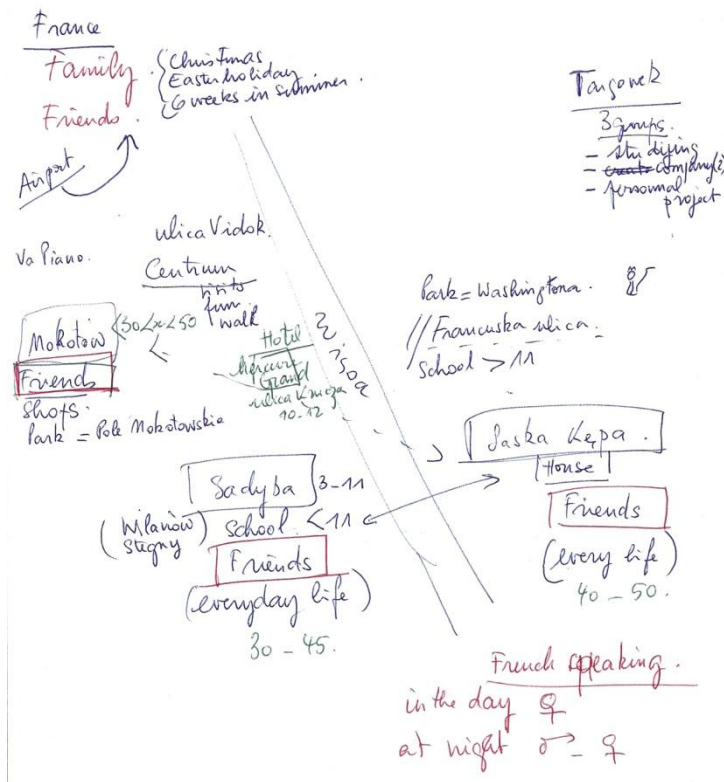 France
Family
Friends.
Christmas
Easter holiday
6 weeks in summer.
Airport
Targowek
3 groups.
- studying
- company(2)
- personnal project
ulica Vidok.
Va Piano.
Centrum
visits
fun
walk
Mokotów
30<x<50
<
Friends
shops.
Park = Pole Mokotowskie
Hotel
Mercure
Grand
ulica Krucza
10-12
Wisła
Park = Washingtona.
// Francuska ulica.
School > 11
Saska Kępa.
House
Friends
(every life)
40 - 50.
Sadyba 3-11
(Wilanów
Stegny)
School. < 11
Friends
(everyday life)
30 - 45.
French speaking.
in the day ♀
at night ♂ - ♀